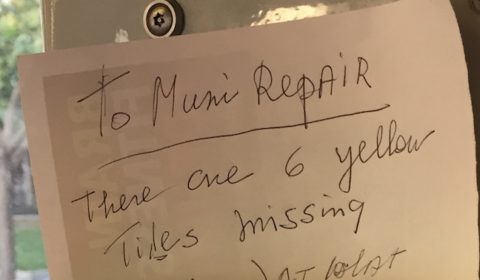 To Muni RepAIR
There are 6 yellow
Tiles missing
AT WHAT